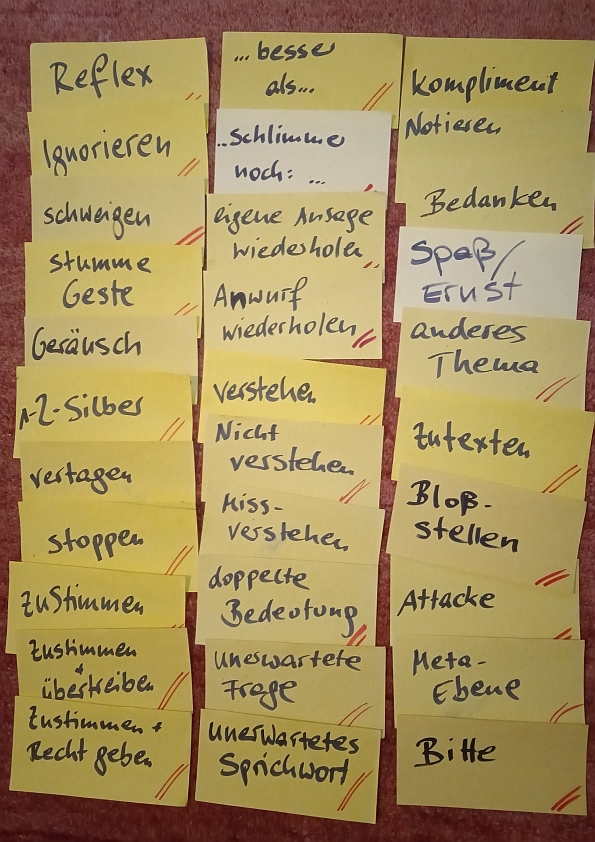 Reflex
Ignorieren
schweigen
stumme
Geste
Geräusch
1-2-Silber
vertagen
stoppen
zustimmen
zustimmen
+
übertreiben
zustimmen +
Recht geben
... besser
als...
..schlimmer
noch: ...
eigene Ansage
wiederholen
Anwurf
wiederholen
verstehen
Nicht
verstehen
Miss-
verstehen
doppelte
Bedeutung
unerwartete
Frage
unerwartetes
Sprichwort
Kompliment
Notieren
Bedanken
Spaß/
Ernst
anderes
Thema
zutexten
Bloß-
stellen
Attacke
Meta-
Ebene
Bitte